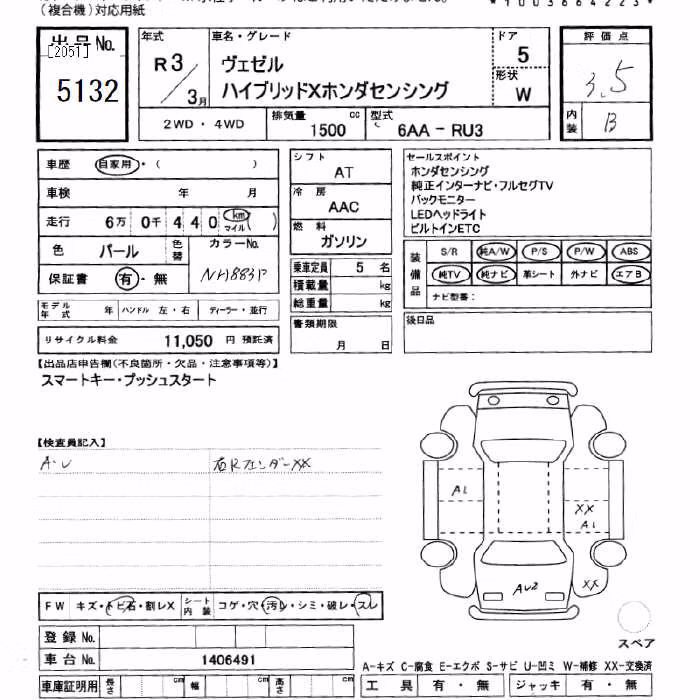 (複合機)対応用紙
*1003664223*
出品No.
[2051]
5132
年式
R3/3月
車名・グレード
ヴェゼル
ハイブリッドXホンダセンシング
ドア
5
形状
W
評価点
3.5
内装
B
2WD・4WD
排気量
1500
cc
型式
6AA-RU3
車歴
自家用・( )
車検 年 月
走行 6万 0千 440 km マイル( )
色 パール 色替
カラーNo.
NH883P
保証書 有・無
シフト
AT
冷房
AAC
燃料
ガソリン
乗車定員 5 名
積載量 kg
総重量 kg
セールスポイント
ホンダセンシング
純正インターナビ・フルセグTV
バックモニター
LEDヘッドライト
ビルトインETC
装備品
S/R 純A/W P/S P/W ABS
純TV 純ナビ 革シート 外ナビ エアB
ナビ型番:
モデル年式 年 ハンドル 左・右 ディーラー・並行
リサイクル料金 11,050 円 預託済
書類期限
月 日
後日品
【出品店申告欄(不良箇所・欠品・注意事項等)】
スマートキー・プッシュスタート
【検査員記入】
A・U
右Rフェンダー××
A1
XX
A1
XX
AU2
FW キズ・トビ石・割レX シート内装 コゲ・穴・汚レ・シミ・破レ・スレ
登録No.
車台No. 1406491
スペア
A-キズ C-腐食 E-エクボ S-サビ U-凹ミ W-補修 XX-交換済
車庫証明用 長さ cm 幅 cm 高さ cm
工具 有・無 ジャッキ 有・無